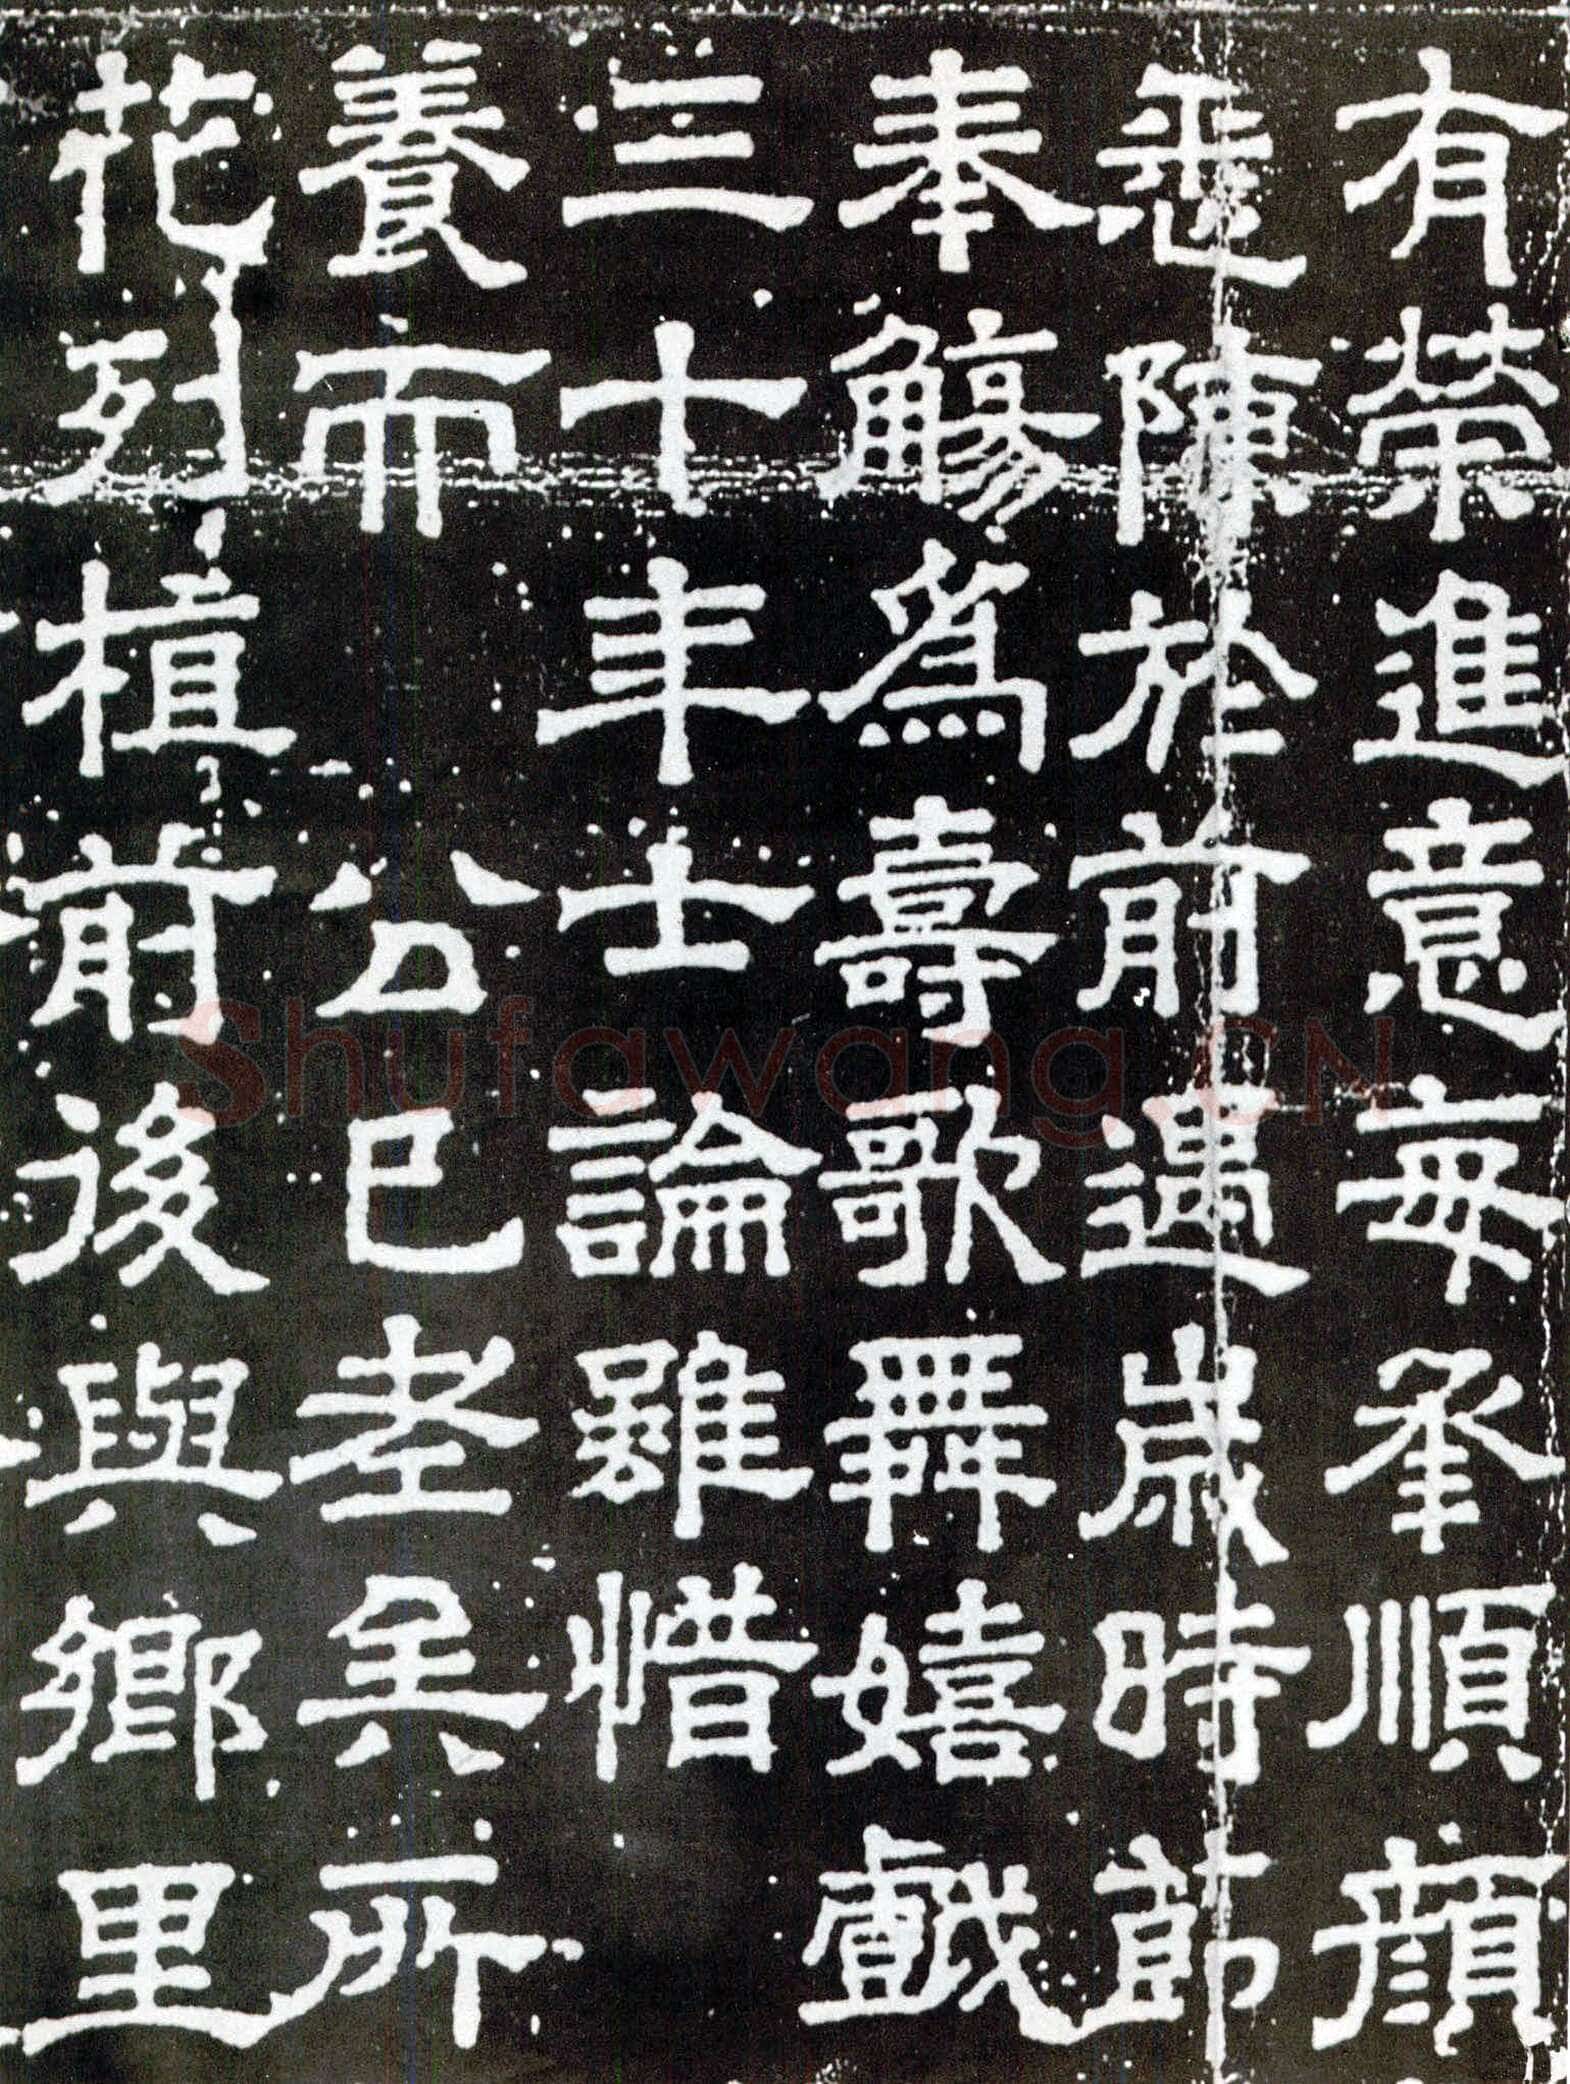 有榮進意每承順顏
悉陳於前遇歲時節
奉觴爲壽歌舞嬉戲
三十年士論雖惜
養而 公已老矣所
花列植前後與鄉里
Shufawang.CN